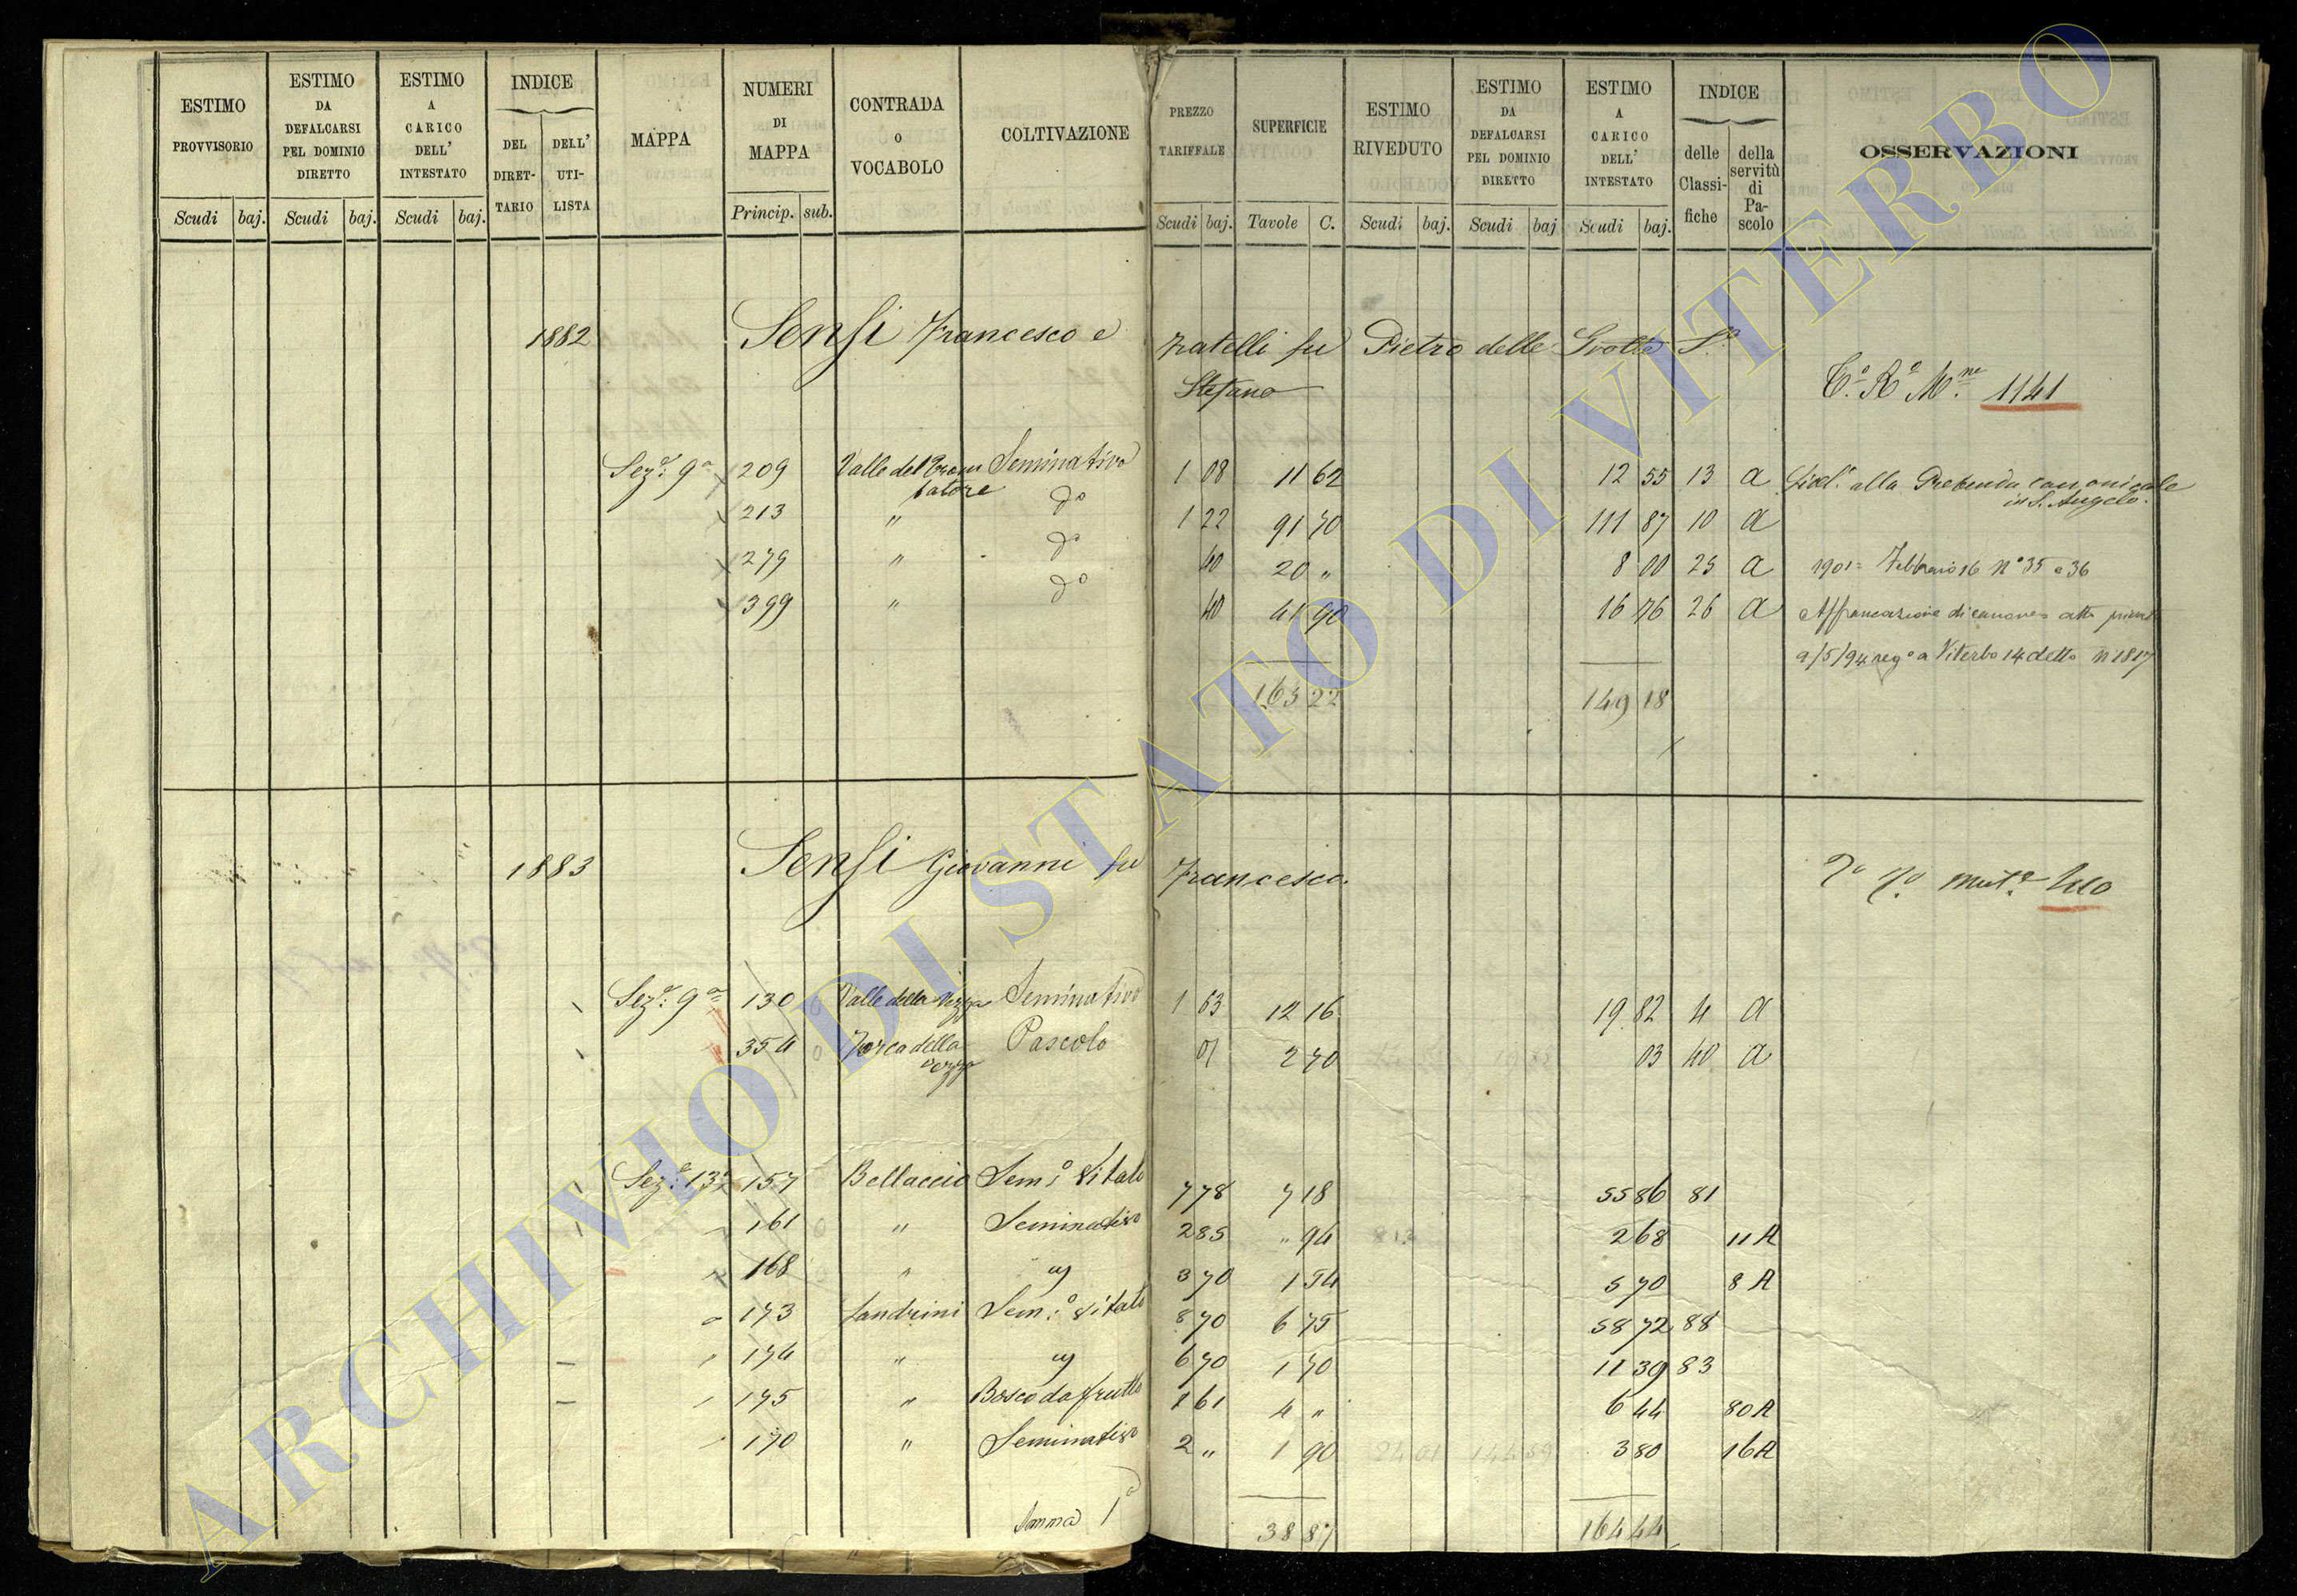 ESTIMO PROVVISORIO
Scudi baj.
ESTIMO DA DEFALCARSI PEL DOMINIO DIRETTO
Scudi baj.
ESTIMO A CARICO DELL' INTESTATO
Scudi baj.
INDICE
DEL DIRETTARIO
DELL' UTILISTA
MAPPA
NUMERI DI MAPPA
Princip. sub.
CONTRADA O VOCABOLO
COLTIVAZIONE
PREZZO TARIFFALE
Scudi baj.
SUPERFICIE
Tavole C.
ESTIMO RIVEDUTO
Scudi baj.
ESTIMO DA DEFALCARSI PEL DOMINIO DIRETTO
Scudi baj
ESTIMO A CARICO DELL' INTESTATO
Scudi baj.
INDICE
delle Classifiche
della servitù di Pascolo
OSSERVAZIONI
1882 Sensi Francesco e fratelli fu Pietro delle Grotte S.
Stefano
1141
Sez.e 9a 209 Valle del Seminativo 1 08 11 62 12 55 13 a Livel. alla Prebenda canonicale
in S. Angelo.
213 " do 1 22 91 70 111 87 10 a
279 " do 40 20 " 8 00 25 a 1901 = Febbraio 16 No 35 e 36
399 " do 40 41 90 16 76 26 a Affrancazione di canone atto privato
9/5/94 rego a Viterbo 14 detto N 1817
165 22 149 18
1883 Sensi Giovanni fu Francesco.
Sez.e 9a 130 Valle della Seminativo 1 63 12 16 19 82 4 a
354 della Pascolo 01 2 70 03 40 a
Sez.e 13a 157 Bellaccio Sem.o Vitato 7 78 7 18 55 86 81
161 " Seminativo 2 85 " 94 2 68 11 A
168 " 3 70 1 54 5 70 8 A
173 Landrini Sem.o Vitato 8 70 6 75 58 72 88
174 " 6 70 1 70 11 39 83
175 " Bosco da frutto 1 61 4 " 6 44 80 A
170 " Seminativo 2 " 1 90 3 80 16 A
Somma 1a 38 87 164 44
ARCHIVIO DI STATO DI VITERBO